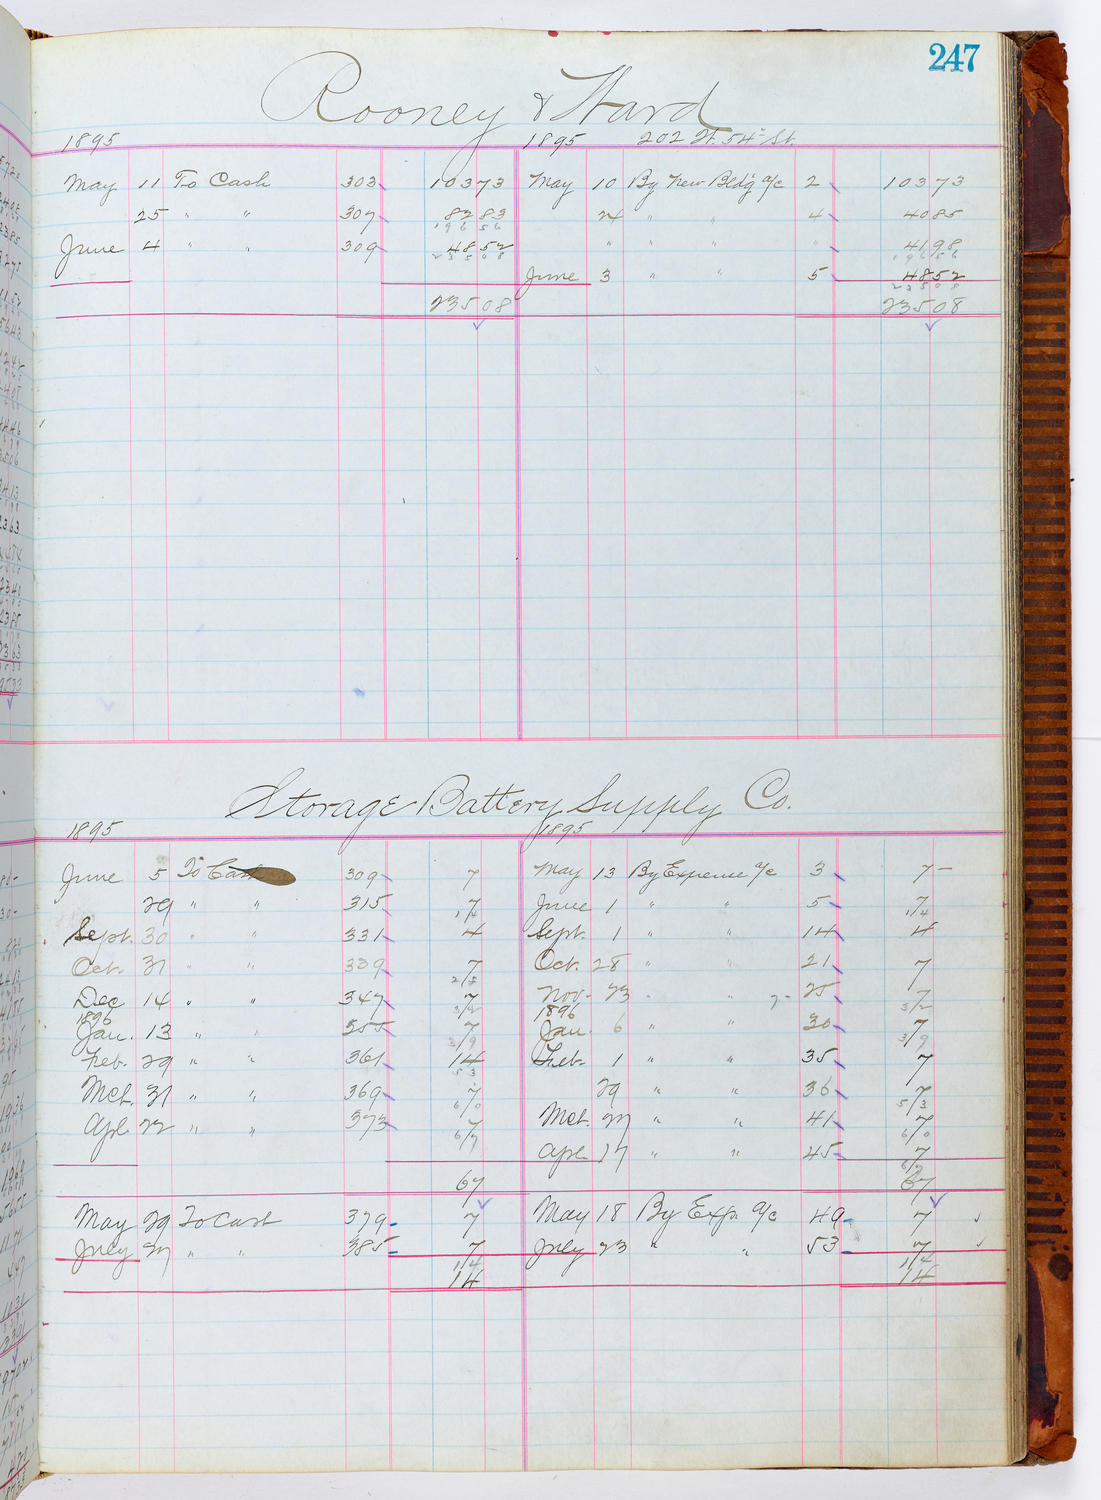 247
Rooney & Ward
1895 1895 202 W. 54th St.
May 11 To Cash 303 103 73 May 10 By New Bldg a/c 2 103 73
25 " " 307 82 83 24 " " 4 40 85
196 56
June 4 " " 309 48 52 " " " " 41 98
235 08 196 56
June 3 " " 5 48 52
235 08
235 08 235 08
Storage Battery Supply Co.
1895 1895
June 5 To Cash 309 7 May 13 By Expense a/c 3 7 —
29 " " 315 7 June 1 " " 5 7
14 14
Sept. 30 " " 331 4 Sept. 1 " " 14 4
Oct. 31 " " 339 7 Oct. 28 " " 21 7
25
Dec 14 " " 347 7 Nov. 23 " " 25 7
32 32
1896 1896
Jan. 13 " " 355 7 Jan. 6 " " 30 7
39 39
Feb. 29 " " 361 14 Feb. 1 " " 35 7
53
Mch. 31 " " 369 7 29 " " 36 7
60 53
Apl. 22 " " 373 7 Mch. 27 " " 41 7
67 60
Apl. 17 " " 45 7
67
67 67
May 29 To Cash 379 7 May 18 By Exp a/c 49 7
July 27 " " 385 7 July 23 " " 53 7
14 14
14 14